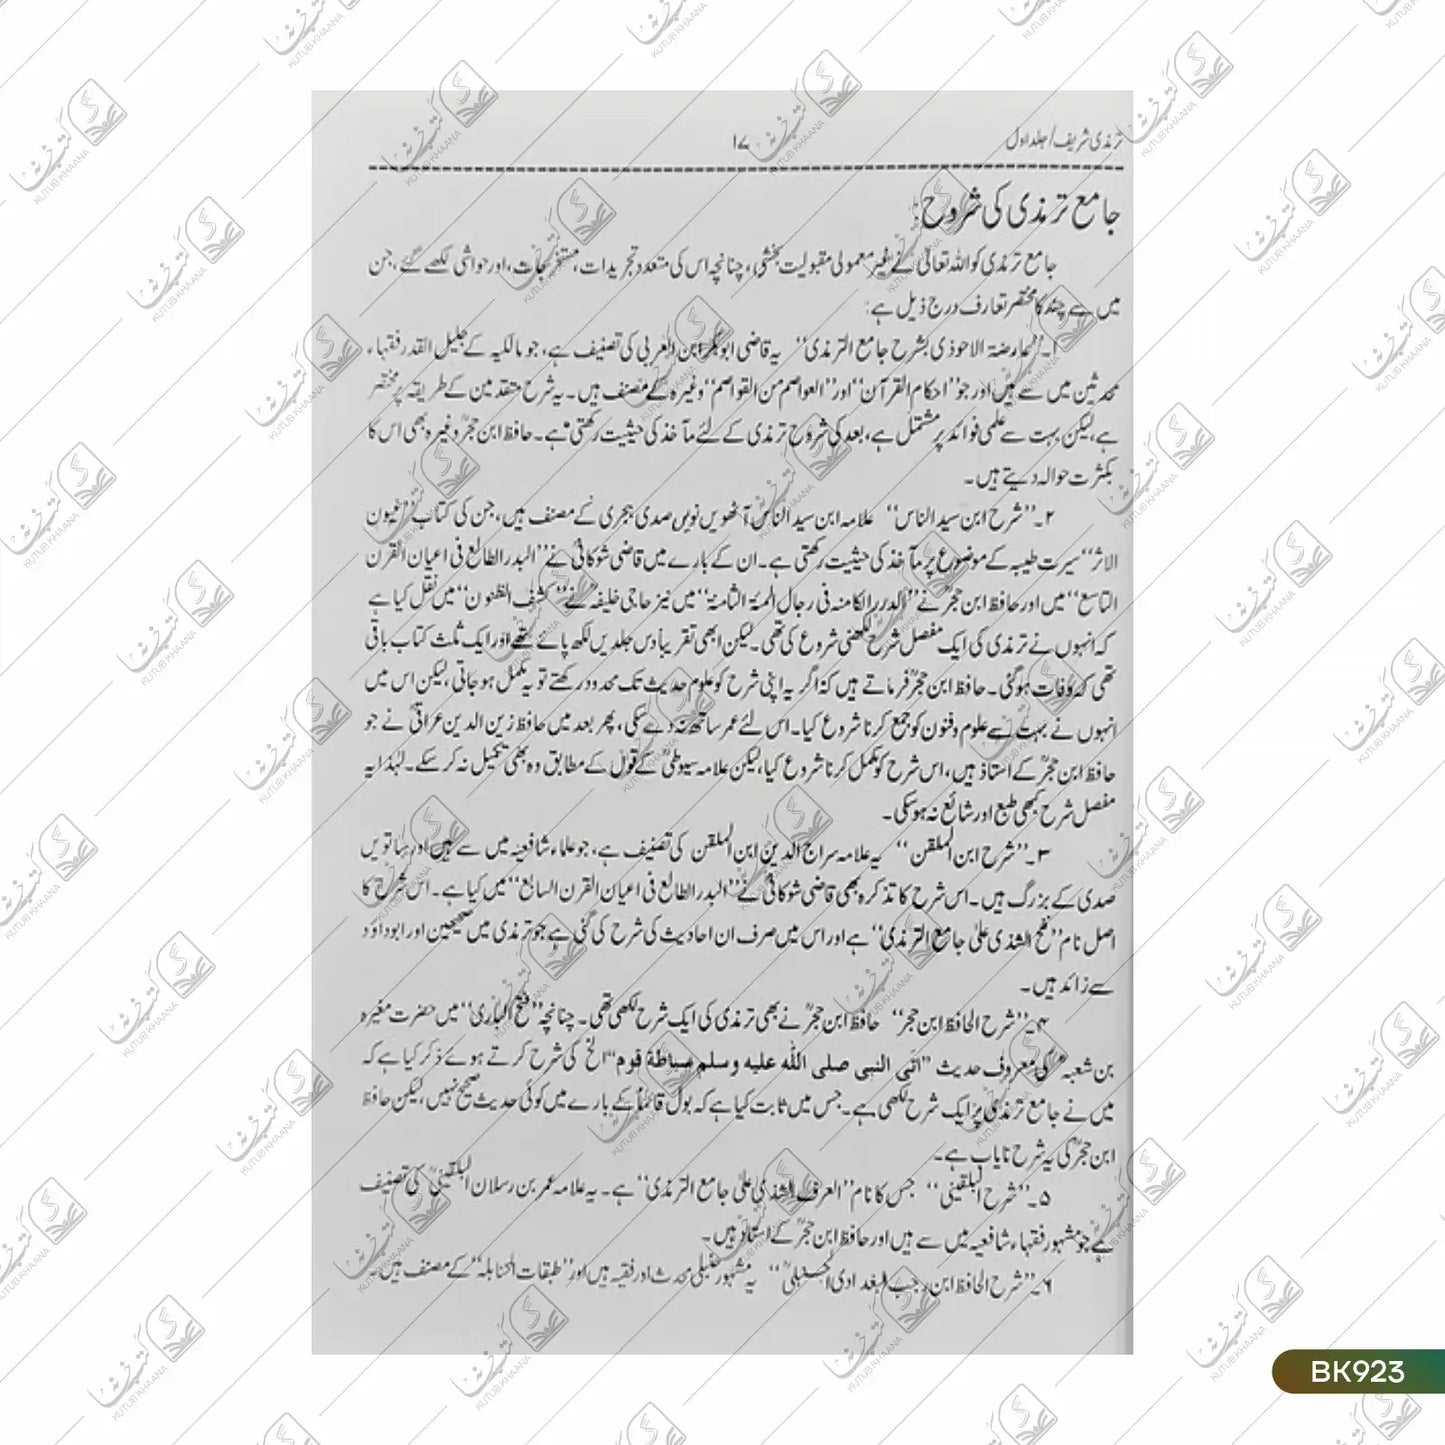 ترمذی شریف/جلد اول
۱۷
جامع ترمذی کی شروح:
جامع ترمذی کو اللہ تعالیٰ نے غیر معمولی مقبولیت بخشی، چنانچہ اس کی متعدد تجریدات، مستخرجات، اور حواشی لکھے گئے، جن
میں سے چند کا مختصر تعارف درج ذیل ہے:
۱۔ ’’عارضۃ الاحوذی بشرح جامع الترمذی‘‘ یہ قاضی ابوبکر ابن العربی کی تصنیف ہے، جو مالکیہ کے جلیل القدر فقہاء
محدثین میں سے ہیں اور جو ’’احکام القرآن‘‘ اور ’’العواصم من القواصم‘‘ وغیرہ کے مصنف ہیں۔ یہ شرح متقدمین کے طریقہ پر مختصر
ہے، لیکن بہت سے علمی فوائد پر مشتمل ہے، بعد کی شروح ترمذی کے لئے مآخذ کی حیثیت رکھتی ہے۔ حافظ ابن حجرؒ وغیرہ بھی اس کا
بکثرت حوالہ دیتے ہیں۔
۲۔ ’’شرح ابن سید الناس‘‘ علامہ ابن سید الناس آٹھویں نویں صدی ہجری کے مصنف ہیں، جن کی کتاب ’’عیون
الاثر‘‘ سیرت طیبہ کے موضوع پر مآخذ کی حیثیت رکھتی ہے۔ ان کے بارے میں قاضی شوکانیؒ نے ’’البدر الطالع فی اعیان القرن
التاسع‘‘ میں اور حافظ ابن حجرؒ نے ’’الدرر الکامنہ فی رجال المئۃ الثامنۃ‘‘ میں نیز حاجی خلیفہ نے ’’کشف الظنون‘‘ میں نقل کیا ہے
کہ انہوں نے ترمذی کی ایک مفصل شرح لکھنی شروع کی تھی۔ لیکن ابھی تقریباً دس جلدیں لکھ پائے تھے اور ایک ثلث کتاب باقی
تھی کہ وفات ہوگئی۔ حافظ ابن حجرؒ فرماتے ہیں کہ اگر یہ اپنی شرح کو علوم حدیث تک محدود رکھتے تو یہ مکمل ہو جاتی، لیکن اس میں
انہوں نے بہت سے علوم و فنون کو جمع کرنا شروع کیا۔ اس لئے عمر ساتھ نہ دے سکی، پھر بعد میں حافظ زین الدین عراقیؒ نے جو
حافظ ابن حجرؒ کے استاذ ہیں، اس شرح کو مکمل کرنا شروع کیا، لیکن علامہ سیوطیؒ کے قول کے مطابق وہ بھی تکمیل نہ کر سکے۔ لہٰذا یہ
مفصل شرح کبھی طبع اور شائع نہ ہو سکی۔
۳۔ ’’شرح ابن الملقن‘‘ یہ علامہ سراج الدین ابن الملقن کی تصنیف ہے، جو علماء شافعیہ میں سے ہیں اور ساتویں
صدی کے بزرگ ہیں۔ اس شرح کا تذکرہ بھی قاضی شوکانیؒ نے ’’البدر الطالع فی اعیان القرن السابع‘‘ میں کیا ہے۔ اس شرح کا
اصل نام ’’نفح الشذی علیٰ جامع الترمذی‘‘ ہے اور اس میں صرف ان احادیث کی شرح کی گئی ہے جو ترمذی میں صحیحین اور ابوداؤد
سے زائد ہیں۔
۴۔ ’’شرح الحافظ ابن حجر‘‘ حافظ ابن حجرؒ نے بھی ترمذی کی ایک شرح لکھی تھی۔ چنانچہ ’’فتح الباری‘‘ میں حضرت مغیرہ
بن شعبہ کی معروف حدیث ’’اتی النبی صلی اللہ علیہ وسلم سباطۃ قوم‘‘ الخ کی شرح کرتے ہوئے ذکر کیا ہے کہ
میں نے جامع ترمذی پر ایک شرح لکھی ہے۔ جس میں ثابت کیا ہے کہ بول قائماً کے بارے میں کوئی حدیث صحیح نہیں، لیکن حافظ
ابن حجرؒ کی یہ شرح نایاب ہے۔
۵۔ ’’شرح البلقینی‘‘ جس کا نام ’’العرف الشذی علیٰ جامع الترمذی‘‘ ہے۔ یہ علامہ عمر بن رسلان البلقینیؒ کی تصنیف
ہے جو مشہور فقہاء شافعیہ میں سے ہیں اور حافظ ابن حجرؒ کے استاذ ہیں۔
۶۔ ’’شرح الحافظ ابن رجب البغدادی الحنبلیؒ‘‘ یہ مشہور حنبلی محدث اور فقیہ ہیں اور ’’طبقات الحنابلہ‘‘ کے مصنف ہیں۔
BK923
کتب خانہ
KUTUB KHAANA